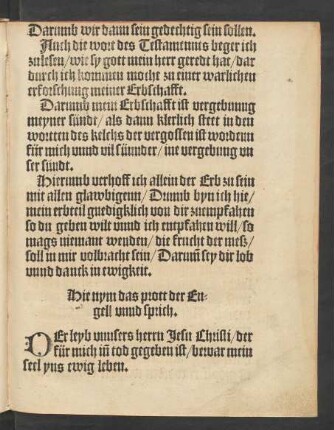 Darumb wir dann sein gedechtig sein sollen.
Auch die wort des Testaments beger ich
zulesen/ wie sy gott mein herr geredt hat/ dar
durch ich kommen mocht zu einer warlichen
erforschung meiner Erbschafft.
Darumb mein Erbschafft ist vergebung
meyner sündt/ als dann klerlich stett in den
wortten des kelchs der vergossen ist worden
für mich unnd vil sünnder/ inn vergebung un
ser sündt.
Hierumb verhoff ich allein der Erb zu sein
mit allen glawbigenn/ Drumb byn ich hie/
mein erbteil gnedigklich von dir zuempfahen
so du geben wilt unnd ich entpfahen will/ so
mags niemant wenden/ die frucht der meß/
soll in mir volbracht sein/ Darumb sey dir lob
unnd danck in ewigkeit.
Hie nym das prott der En-
gell unnd sprich.
DEr leyb unnsers herrn Jesu Christi/ der
für mich in tod gegeben ist/ bewar mein
seel yns ewig leben.